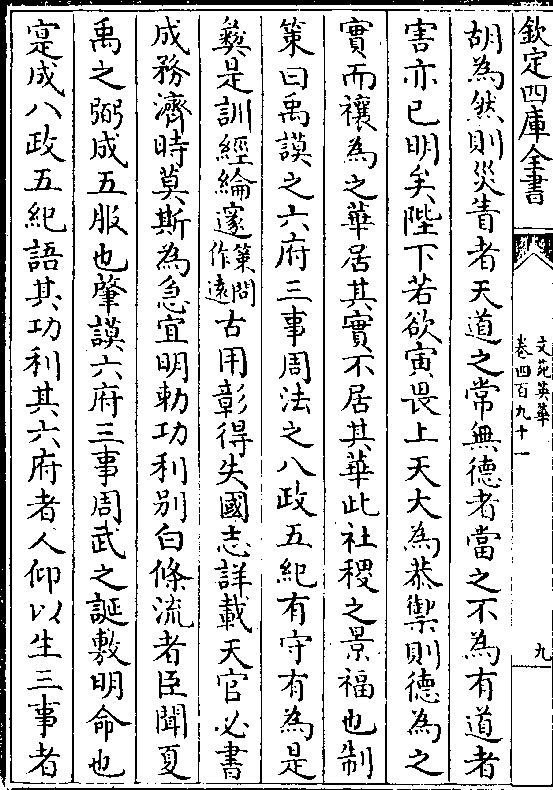 欽定四庫全書
文苑英華
卷四百九十一
九
胡為然則災眚者天道之常無德者當之不為有道者
害亦已明矣陛下若欲寅畏上天大為恭禦則德為之
實而禳為之華居其實不居其華此社稷之景福也制
策曰禹謨之六府三事周法之八政五紀有守有為是
彝是訓經綸邃策問作遠古用彰得失國志詳載天官必書
成務濟時莫斯為急宜明勅功利別白條流者臣聞夏
禹之弼成五服也肇謨六府三事周武之誕敷明命也
寔成八政五紀語其功利其六府者人仰以生三事者